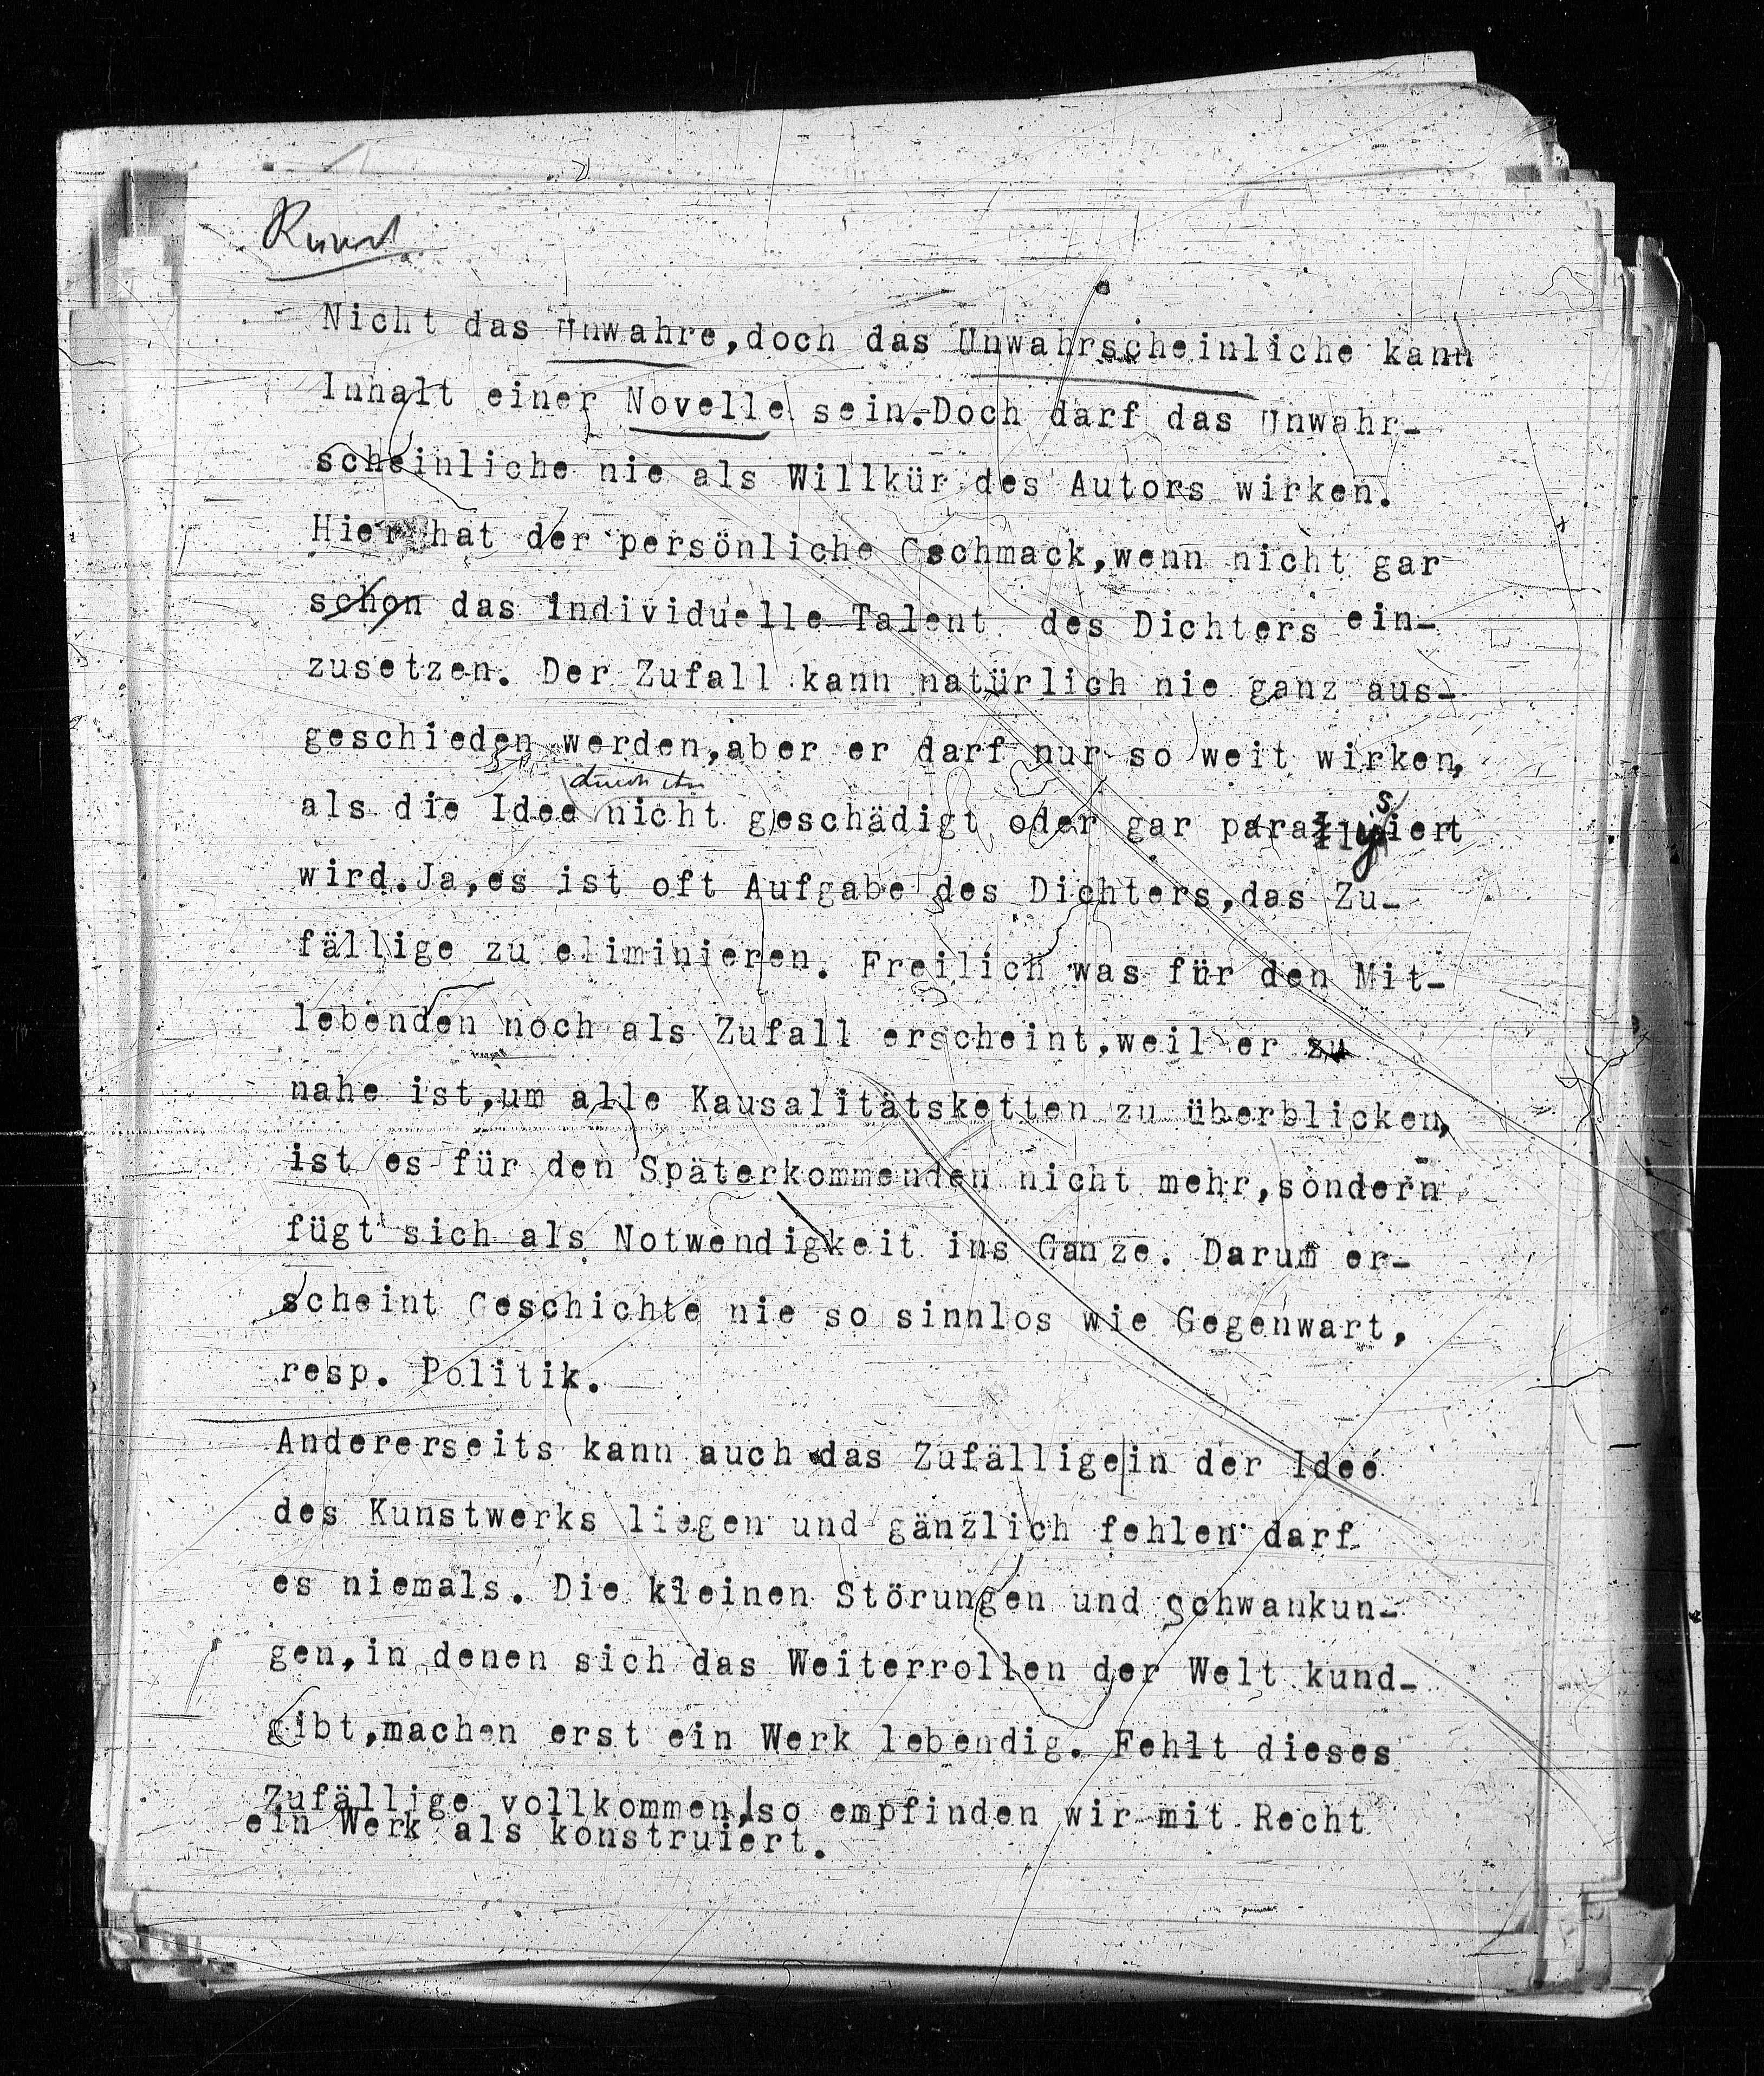 Kunst
Nicht das Unwahre,doch das Unwahrscheinliche kann
Inhalt einer Novelle sein.Doch darf das Unwahr-
scheinliche nie als Willkür des Autors wirken.
Hier hat der persönliche Geschmack,wenn nicht gar
schon das individuelle Talent des Dichters ein-
zusetzen. Der Zufall kann natürlich nie ganz aus-
geschieden werden,aber er darf nur so weit wirken,
durch ihn
als die Idee nicht geschädigt oder gar paralysiert
wird.Ja,es ist oft Aufgabe des Dichters,das Zu-
fällige zu eliminieren. Freilich was für den Mit-
lebenden noch als Zufall erscheint,weil er zu
nahe ist,um alle Kausalitätsketten zu überblicken,
ist es für den Späterkommenden nicht mehr,sondern
fügt sich als Notwendigkeit ins Ganze. Darum er-
scheint Geschichte nie so sinnlos wie Gegenwart,
resp. Politik.
Andererseits kann auch das Zufällige in der Idee
des Kunstwerks liegen und gänzlich fehlen darf
es niemals. Die kleinen Störungen und Schwankun-
gen,in denen sich das Weiterrollen der Welt kund-
gibt,machen erst ein Werk lebendig. Fehlt dieses
Zufällige vollkommen,so empfinden wir mit Recht
ein Werk als konstruiert.